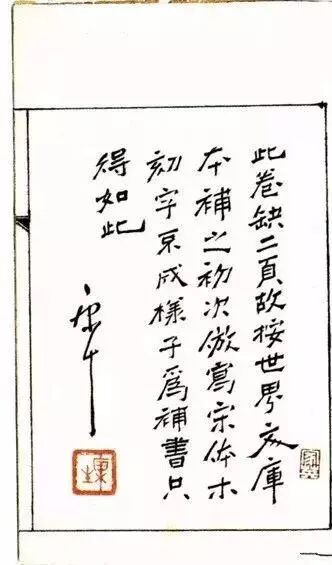 此卷缺二頁故按世界文庫
本補之初次倣寫宋体木
刻字成樣子爲補書只
得如此